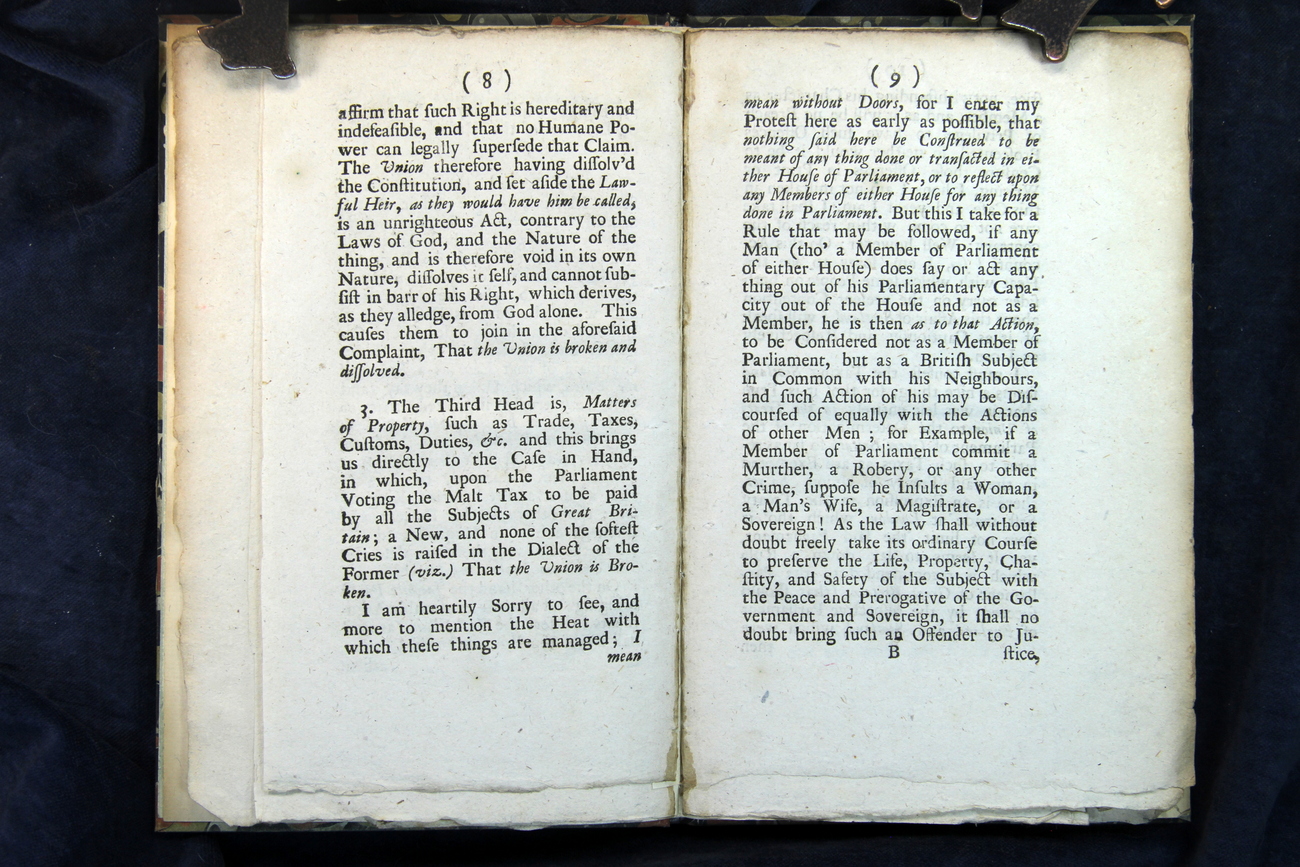 ( 8 )
affirm that ſuch Right is hereditary and
indefeaſible, and that no Humane Po-
wer can legally ſuperſede that Claim.
The Union therefore having diſſolv'd
the Conſtitution, and ſet aſide the Law-
ful Heir, as they would have him be called,
is an unrighteous Act, contrary to the
Laws of God, and the Nature of the
thing, and is therefore void in its own
Nature, diſſolves it ſelf, and cannot ſub-
ſiſt in barr of his Right, which derives,
as they alledge, from God alone. This
cauſes them to join in the aforeſaid
Complaint, That the Union is broken and
diſſolved.
3. The Third Head is, Matters
of Property, ſuch as Trade, Taxes,
Cuſtoms, Duties, &c. and this brings
us directly to the Caſe in Hand,
in which, upon the Parliament
Voting the Malt Tax to be paid
by all the Subjects of Great Bri-
tain; a New, and none of the ſofteſt
Cries is raiſed in the Dialect of the
Former (viz.) That the Union is Bro-
ken.
I am heartily Sorry to ſee, and
more to mention the Heat with
which theſe things are managed; I
mean
( 9 )
mean without Doors, for I enter my
Proteſt here as early as poſſible, that
nothing ſaid here be Conſtrued to be
meant of any thing done or tranſacted in ei-
ther Houſe of Parliament, or to reflect upon
any Members of either Houſe for any thing
done in Parliament. But this I take for a
Rule that may be followed, if any
Man (tho' a Member of Parliament
of either Houſe) does ſay or act any
thing out of his Parliamentary Capa-
city out of the Houſe and not as a
Member, he is then as to that Action,
to be Conſidered not as a Member of
Parliament, but as a Britiſh Subject
in Common with his Neighbours,
and ſuch Action of his may be Diſ-
courſed of equally with the Actions
of other Men ; for Example, if a
Member of Parliament commit a
Murther, a Robery, or any other
Crime, ſuppoſe he Inſults a Woman,
a Man's Wife, a Magiſtrate, or a
Sovereign! As the Law ſhall without
doubt freely take its ordinary Courſe
to preſerve the Life, Property, Cha-
ſtity, and Safety of the Subject with
the Peace and Prerogative of the Go-
vernment and Sovereign, it ſhall no
doubt bring ſuch an Offender to Ju-
B ſtice,